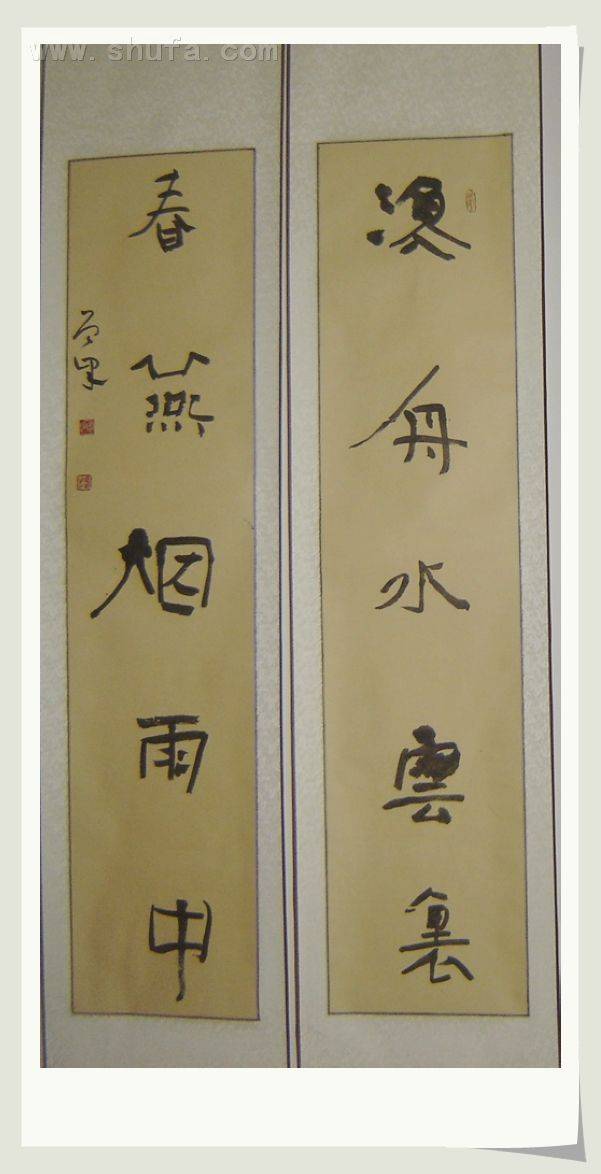 www.shufa.com
漁舟水雲裏
春燕烟雨中